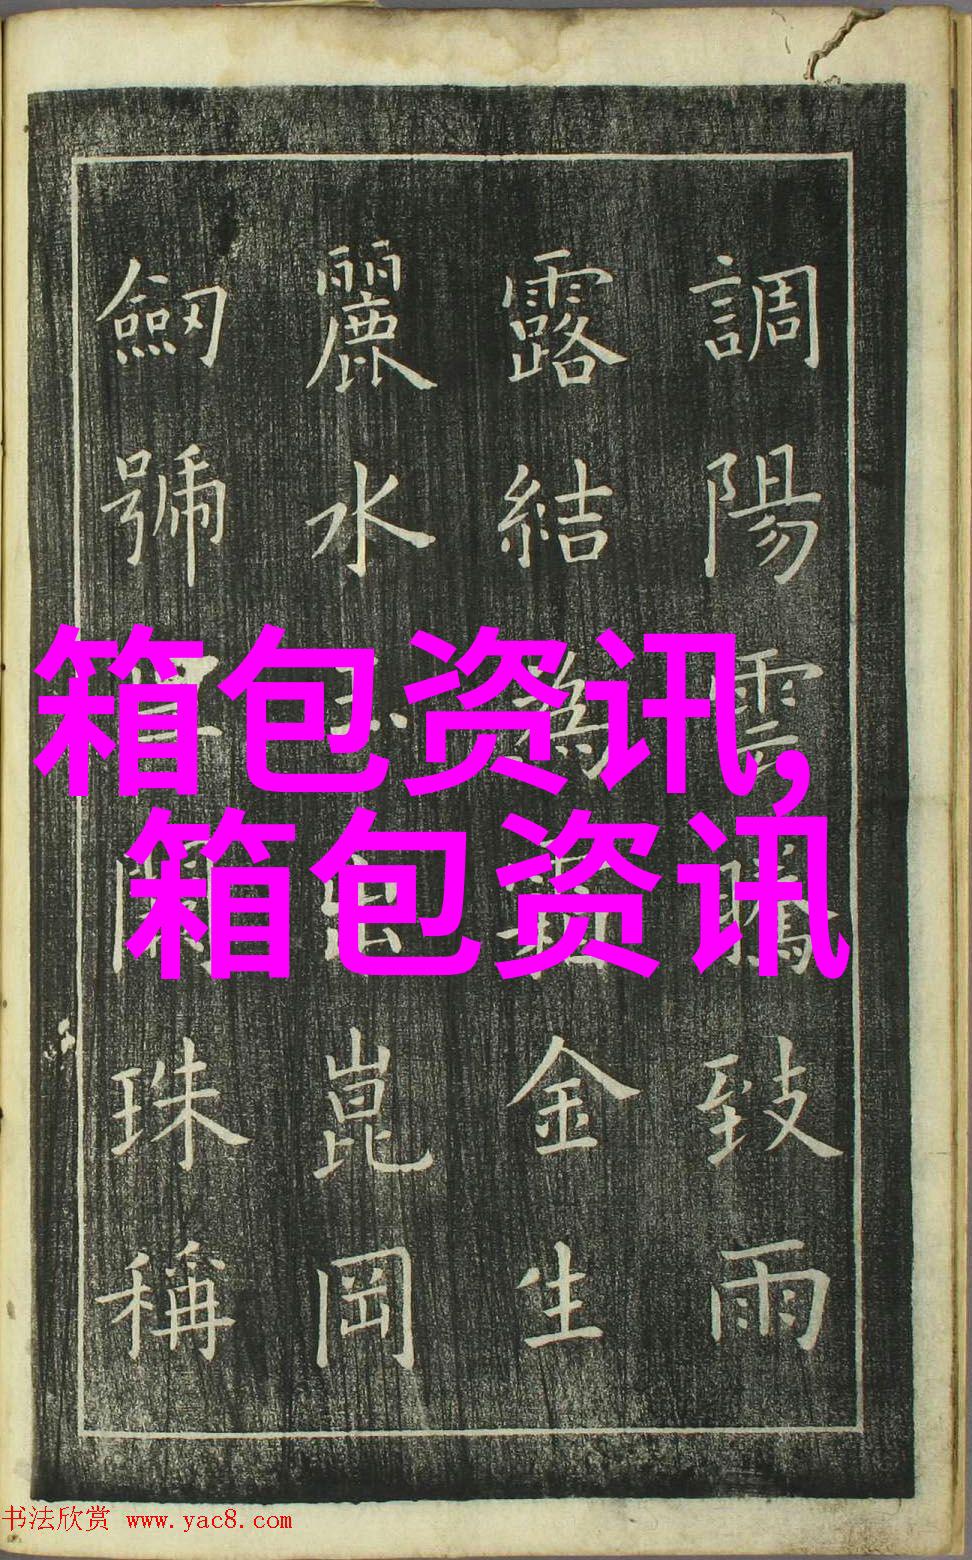 調陽雲騰致雨
露結爲金生
麗水崑岡
劒號巨闕珠稱
箱包资讯,
箱包资讯
书法欣赏 www.yac8.com